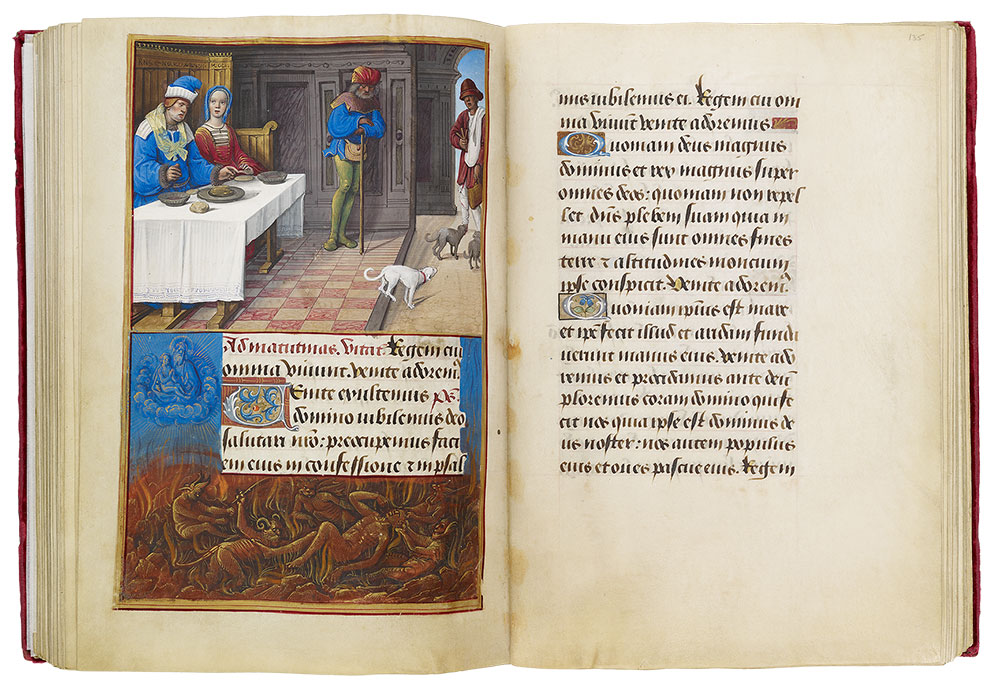 Ad matutinas. Vitat. Regem cui
omnia viuunt. Venite adorem᷒.
Venite exultemus ps.
domino iubilemus deo
salutari nr̄o: preocupemus faci
em eius in confessione ⁊ in psal
135
mis iubilemus ei. Regem cui om
nia viuūt venite adoremus
Quoniam deus magnus
dominus et rex magnus super
omnes deos: quoniam non repel
let dn̄s plebem suam quia in
manu eius sunt omnes fines
terre ⁊ altitudines moncium
ipse conspicit. Venite adorem᷒.
Quoniam ip̄ius est mare
et ip̄e fecit illud et aridam funda
uerunt manus eius. Venite ado
remus et procidamus ante deū
ploremus coram domino qui fe
cit nos quia ip̄e est dominus de
us noster: nos autem populus
eius et oues pascue eius. Regem